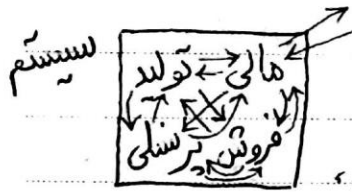 سیستم
مالی تولید
فروش پرسنلی